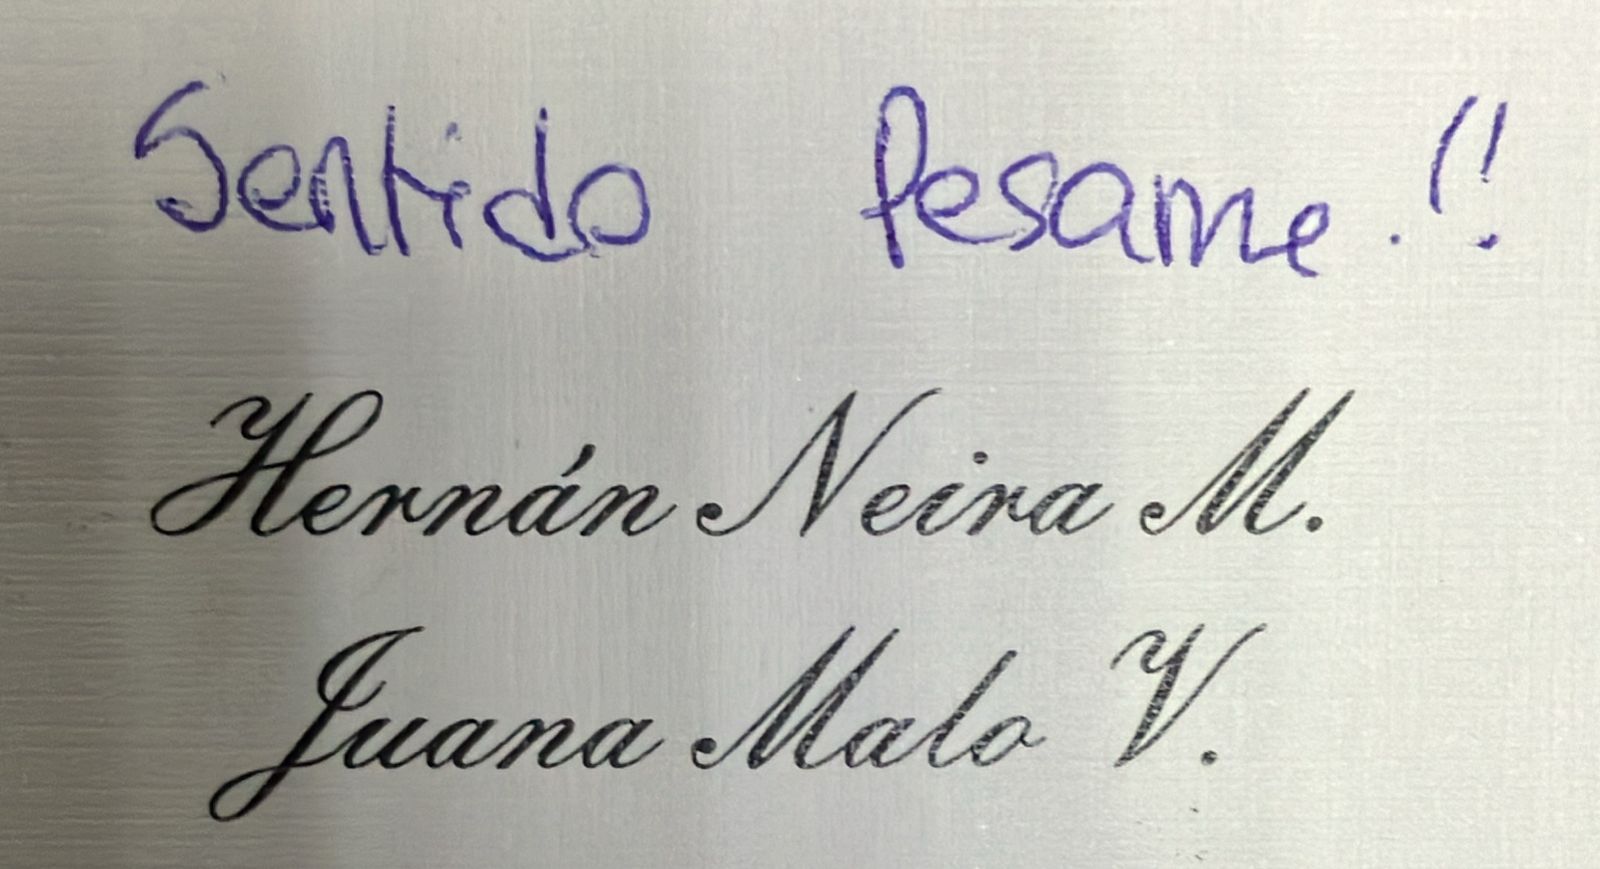 Sentido Pesame.!!
Hernán Neira M.
Juana Malo V.